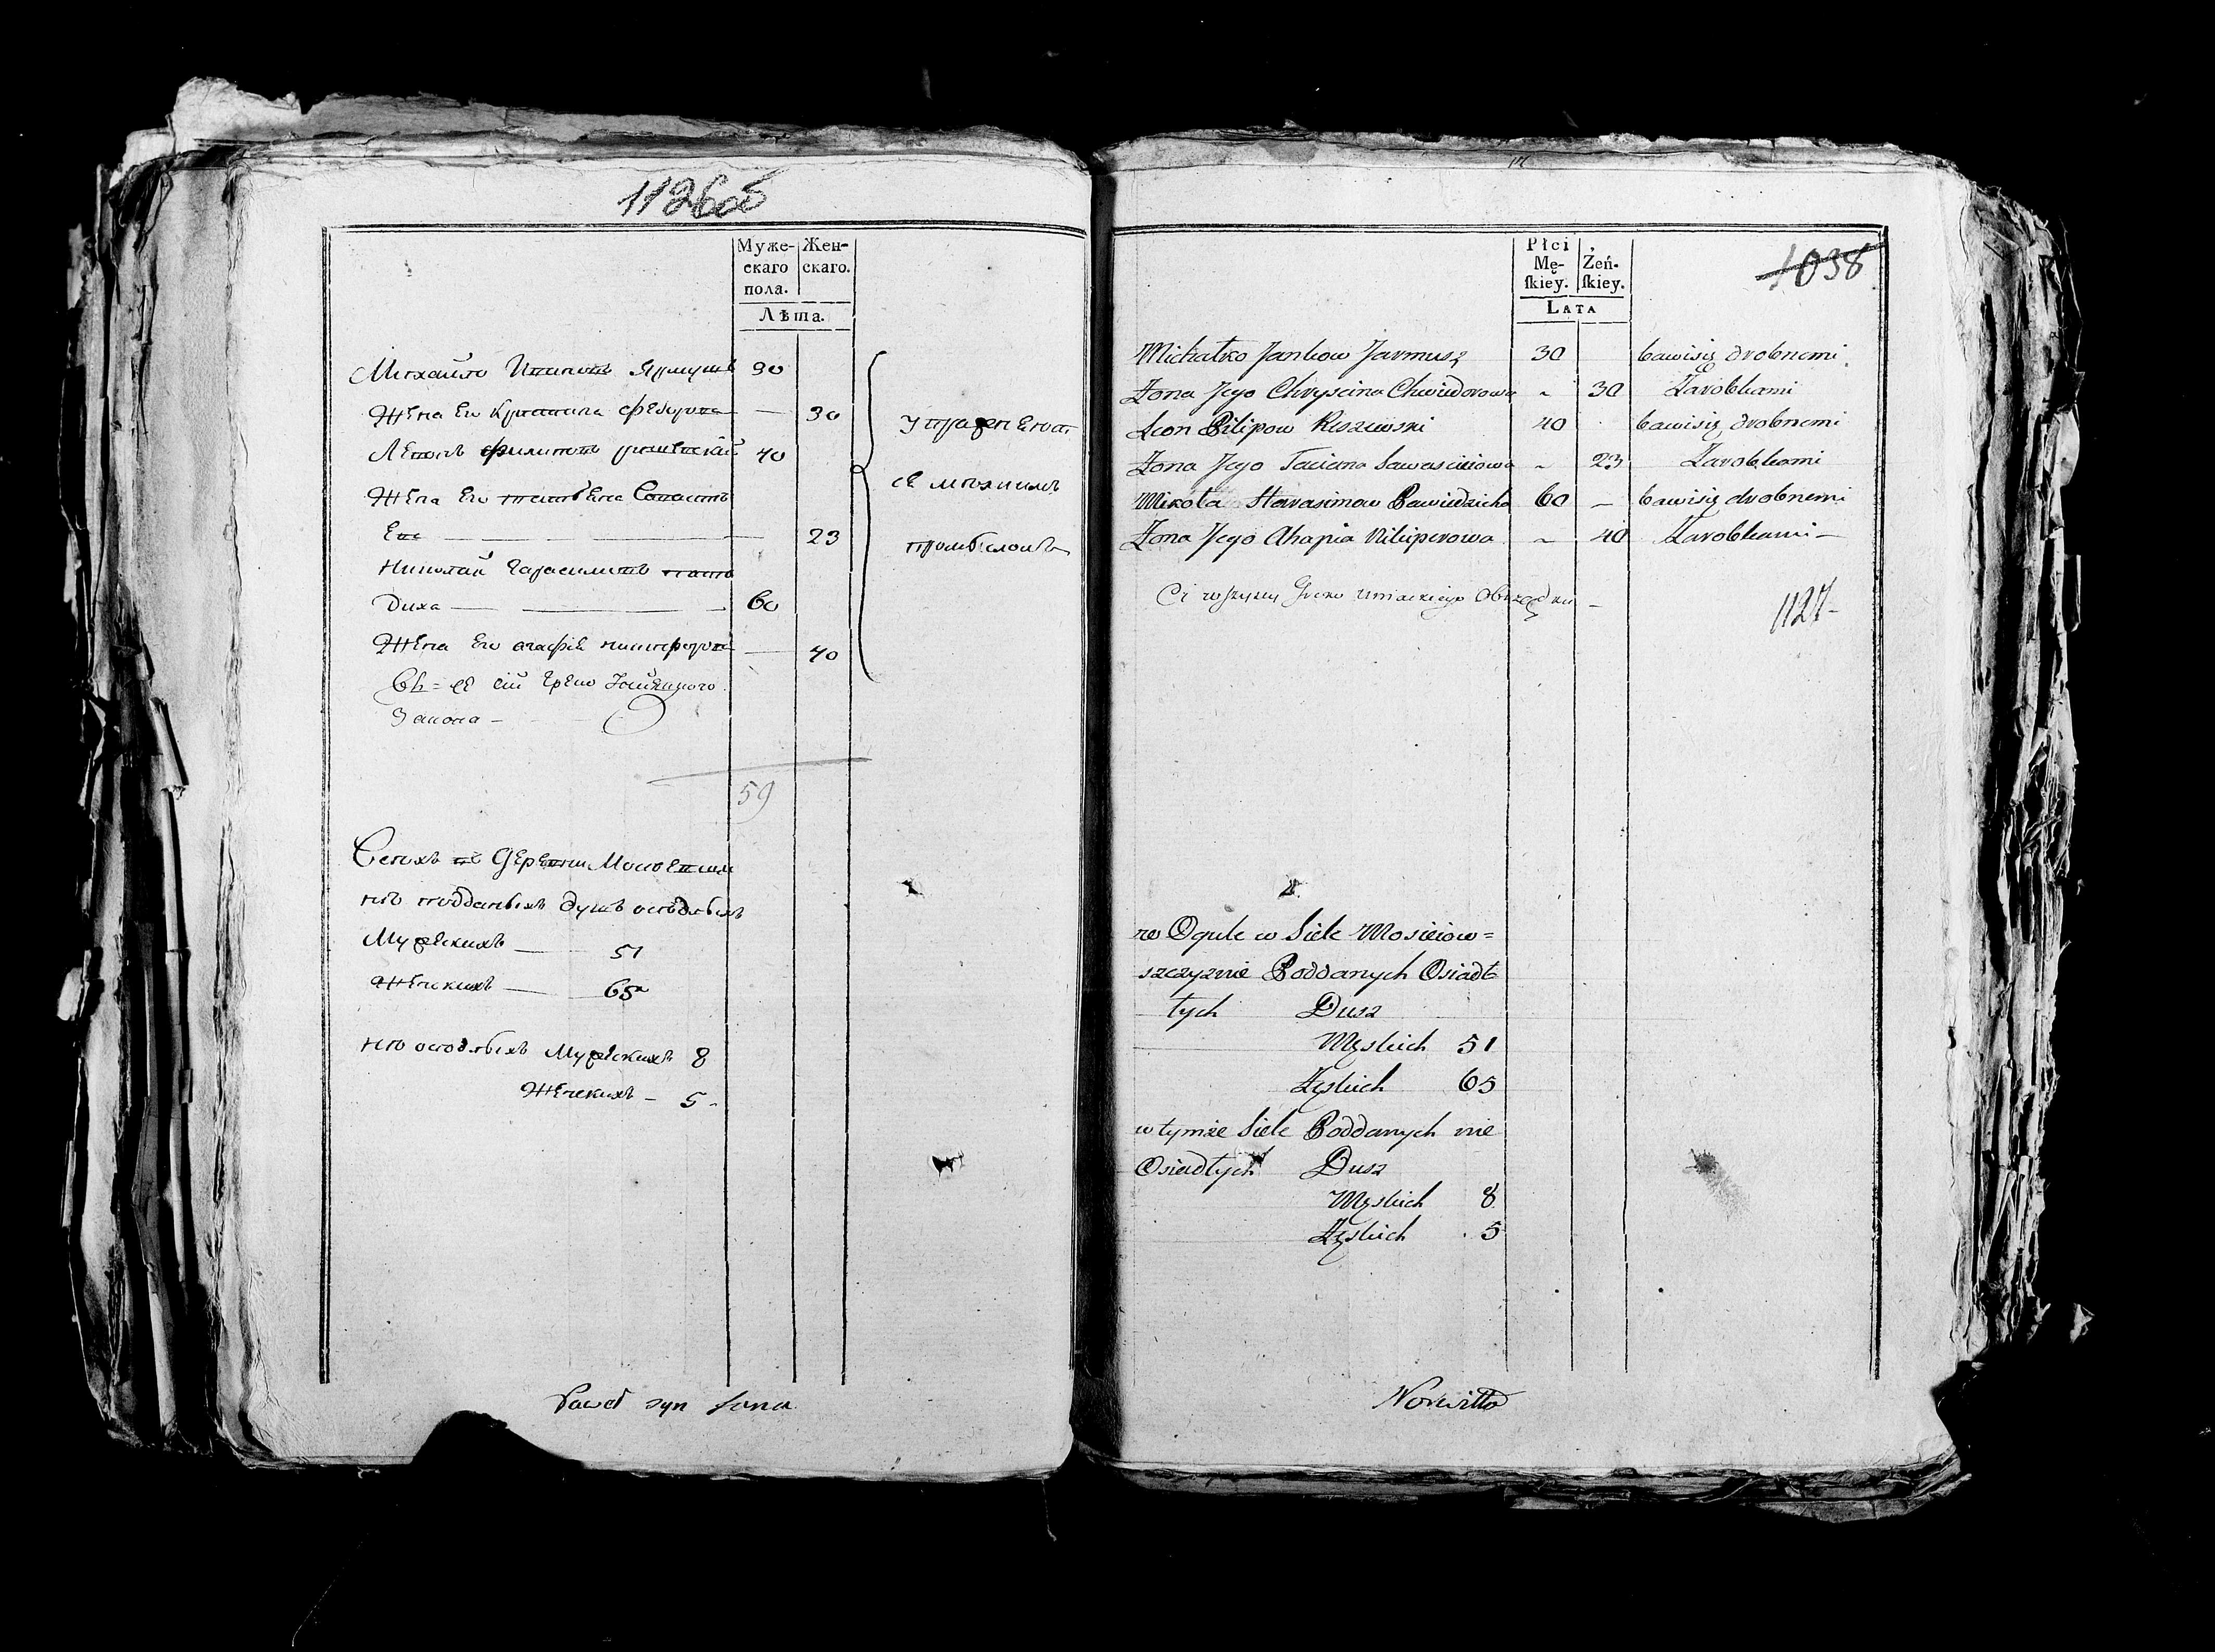 1126об
Муже-
скаго
пола.
Жен-
скаго.
Лѣта.
Михайло Янковъ Ярмушъ 30
Жена Его Христина Федорова — 30
Леонъ Филиповъ 40
Жена Его
Ева — 23
Николай Гарасимовъ Пави
диха — 60
Жена Его Агафія Никифорова — 40
Всѣ сіи Греко Уніяцкого
Закона —
упражняют
ся мѣлкимъ
промысломъ
59
Всѣхъ въ Деревни
нѣ подданыхъ душъ осѣдлыхъ
Мужскихъ — 51
Женскихъ — 65
не осѣдлыхъ Мужскихъ 8
Женскихъ — 5
Paweł syn Jana
Płci
Mę-
skiey.
Żeń-
skiey.
LATA
1038
Michałko Jankow Jarmusz 30 bawisię drobnemi
Żona Jego Chryscina Chwiedorowa ~ 30 Zarobkami
Leon Pilipow Raszewski 40 bawisię drobnemi
Żona Jego Taciana Sawasciiowa ~ 23 Zarobkami
Mikoła Harasimow Pawiedzicha 60 — bawisię drobnemi
Żona Jego Ahapia Nikiperowa ~ 40 Zarobkami —
Ci wszyscy Greko Uniackiego Obrzędku —
1127
w Ogule w Siele Mosieiow=
szczyznie Poddanych Osiadł
łych Dusz
Męskich 51
Żęskich 65
w tymże Siele Poddanych nie
Osiadłych Dusz
Męskich 8
Żęskich 5
Norwiłło